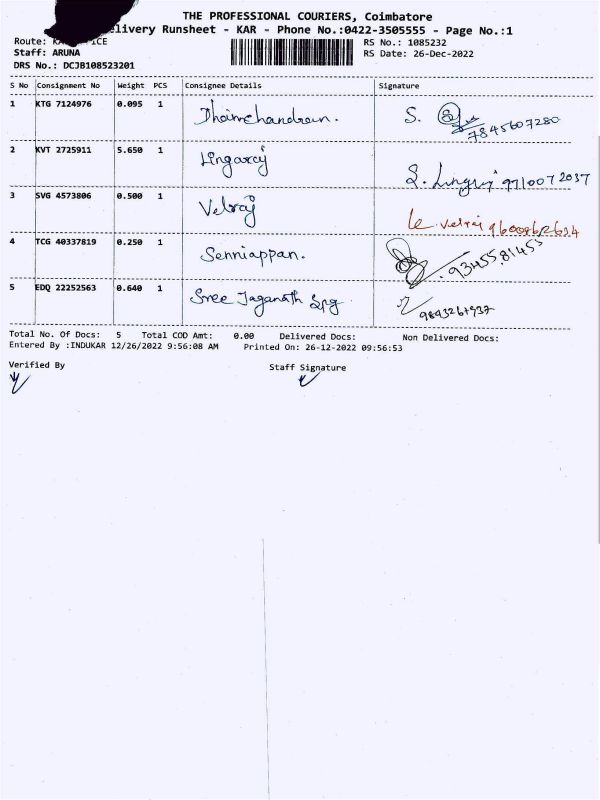 THE PROFESSIONAL COURIERS, Coimbatore
elivery Runsheet - KAR - Phone No.:0422-3505555 - Page No.:1
Route: ICE RS No.: 1085232
Staff: ARUNA RS Date: 26-Dec-2022
DRS No.: DCJB108523201
S No Consignment No Weight PCS Consignee Details Signature
1 KTG 7124976 0.095 1 S. 7845607280
2 KVT 2725911 5.650 1 Lingaraj S. Lingraj 9710072037
3 SVG 4573806 0.500 1 Velraj K. Velraj
4 TCG 40337819 0.250 1 Senniappan. 9345581453
5 EDQ 22252563 0.640 1 Sree Jaganath Spg
Total No. Of Docs: 5 Total COD Amt: 0.00 Delivered Docs: Non Delivered Docs:
Entered By :INDUKAR 12/26/2022 9:56:08 AM Printed On: 26-12-2022 09:56:53
Verified By Staff Signature